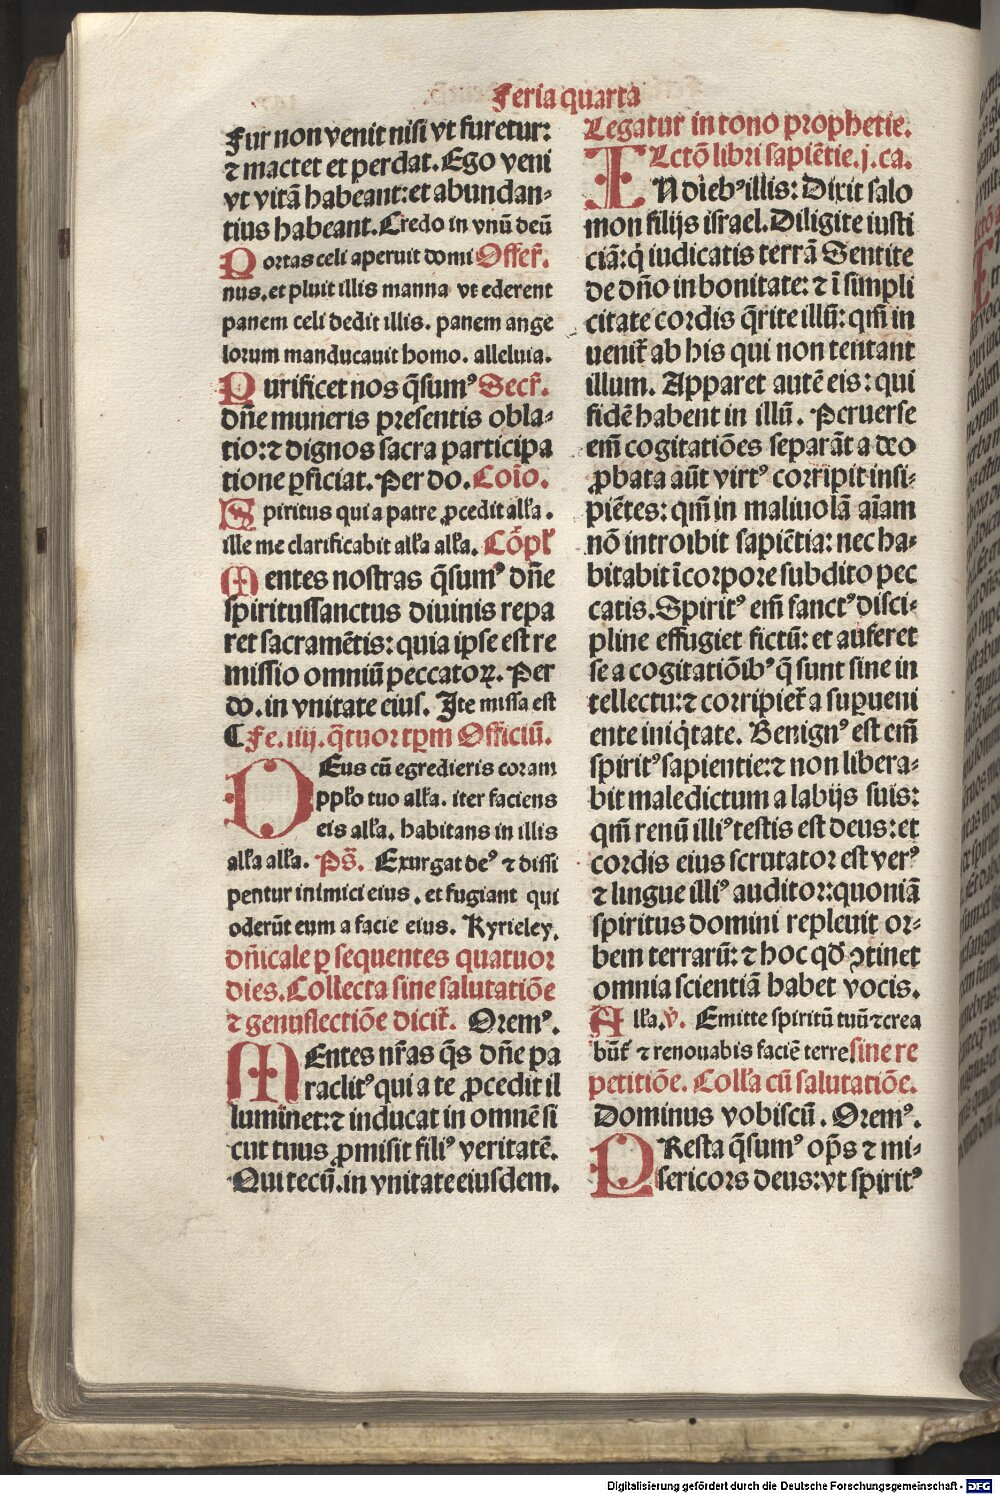 Feria quarta
Fur non venit nisi vt furetur:
⁊ mactet et perdat. Ego veni
vt vitā habeant: et abundan-
tius habeant. Credo in vnū deū
Portas celi aperuit domi Offeꝛ̄.
nus. et pluit illis manna vt ederent
panem celi dedit illis. panem ange
lorum manducauit homo. alleluia.
Purificet nos q̄sumꝰ Secꝛ̄.
dn̄e muneris presentis obla-
tio: ⁊ dignos sacra participa
tione ꝑficiat. Per do. Coīo.
Spiritus qui a patre ꝓcedit alła.
ille me clarificabit alła alła. Cōpł
Mentes nostras q̄sumꝰ dn̄e
spiritussanctus diuinis repa
ret sacramētis: quia ipse est re
missio omniū peccatoꝝ. Per
do. in vnitate eius. Ite missa est
¶ Fe. iiij. q̄tuor tꝑm Officiū.
DEus cū egredieris coram
ppło tuo alła. iter faciens
eis alła. habitans in illis
alła alła. Ps̄. Exurgat deꝰ ⁊ dissi
pentur inimici eius. et fugiant qui
oderūt eum a facie eius. Kyrieley.
dn̄icale ꝑ sequentes quatuor
dies. Collecta sine salutatiōe
⁊ genuflectiōe dicit̄. Oremꝰ.
MEntes nr̄as q̄s dn̄e pa
raclitꝰ qui a te ꝓcedit il
luminet: ⁊ inducat in omnē si
cut tuus ꝓmisit filiꝰ veritatē.
Qui tecū. in vnitate eiusdem.
Legatur in tono prophetie.
LEctō libri sapiētie. j. ca.
IN dieb̄ꝰ illis: Dixit salo
mon filijs israel. Diligite iusti
ciā: q̇ iudicatis terrā Sentite
de dn̄o in bonitate: ⁊ ī simpli
citate cordis q̄rite illū: qm̄ in
uenit̄ ab his qui non tentant
illum. Apparet autē eis: qui
fidē habent in illū. Peruerse
em̄ cogitatiōes separāt a deo
ꝓbata aūt virtꝰ corripit insi-
piētes: qm̄ in maliuolā aīam
nō introibit sapiētia: nec ha-
bitabit ī corpore subdito pec
catis. Spiritꝰ em̄ sanctꝰ disci-
pline effugiet fictū: et auferet
se a cogitatiōibꝰ q̄ sunt sine in
tellectu: ⁊ corripiet̄ a suꝑueni
ente iniq̇tate. Benignꝰ est em̄
spiritꝰ sapientie: ⁊ non libera-
bit maledictum a labijs suis:
qm̄ renū illiꝰ testis est deus: et
cordis eius scrutator est verꝰ
⁊ lingue illiꝰ auditor: quoniā
spiritus domini repleuit or-
bem terrarū: ⁊ hoc qd̄ ↄtinet
omnia scientiā habet vocis.
Alła. v̄. Emitte spiritū tuū ⁊ crea
būt̄ ⁊ renouabis faciē terre sine re
petitiōe. Colła cū salutatiōe.
Dominus vobiscū. Oremꝰ.
PResta q̄sumꝰ op̄s ⁊ mi-
sericors deus: vt spiritꝰ
Digitalisierung gefördert durch die Deutsche Forschungsgemeinschaft - DFG